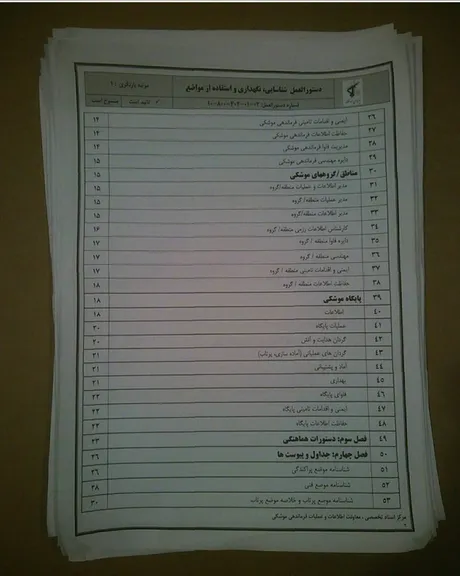 دستورالعمل شناسایی، نگهداری و استفاده از مواضع
مرتبه بازنگری: ۱
شماره دستورالعمل:
۲۶ ایمنی و اقدامات تامینی فرماندهی موشکی ۱۴
۲۷ حفاظت اطلاعات فرماندهی موشکی ۱۴
۲۸ مدیریت فاوا فرماندهی موشکی ۱۴
۲۹ دایره مهندسی فرماندهی موشکی ۱۵
۳۰ مناطق/گروههای موشکی ۱۵
۳۱ مدیر اطلاعات و عملیات منطقه/گروه ۱۵
۳۲ مدیر عملیات منطقه/گروه ۱۵
۳۳ مدیر اطلاعات منطقه/گروه ۱۵
۳۴ کارشناس اطلاعات رزمی منطقه/گروه ۱۶
۳۵ دایره فاوا منطقه / گروه ۱۷
۳۶ مهندسی منطقه / گروه ۱۷
۳۷ ایمنی و اقدامات تامینی منطقه / گروه ۱۷
۳۸ حفاظت اطلاعات منطقه / گروه ۱۸
۳۹ پایگاه موشکی ۱۸
۴۰ اطلاعات ۱۸
۴۱ عملیات پایگاه ۲۰
۴۲ گردان هدایت و آتش ۲۰
۴۳ گردان های عملیاتی (آماده سازی، پرتاب) ۲۱
۴۴ آماد و پشتیبانی ۲۱
۴۵ بهداری ۲۱
۴۶ فاوای پایگاه ۲۲
۴۷ ایمنی و اقدامات تامینی پایگاه ۲۲
۴۸ حفاظت اطلاعات پایگاه ۲۳
۴۹ فصل سوم: دستورات هماهنگی ۲۳
۵۰ فصل چهارم: جداول و پیوست ها ۲۶
۵۱ شناسنامه موضع پراکندگی ۲۶
۵۲ شناسنامه موضع فنی ۲۸
۵۳ شناسنامه موضع پرتاب و خلاصه موضع پرتاب ۳۰
مرکز اسناد تخصصی ، معاونت اطلاعات و عملیات فرماندهی موشکی